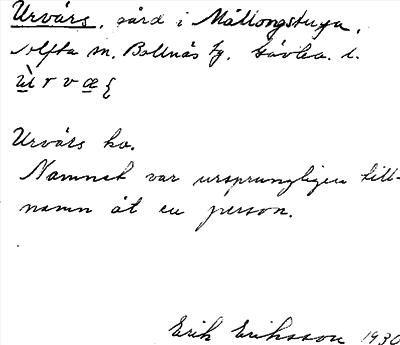 Urvårs, gård i Mållongstuga,
Arfta sn. Bollnäs tg. Gävleb. l.
ùrvæ{
Urvårs ka.
Namnet var ursprungligen till-
namn åt en person.
Erik Eriksson 1930